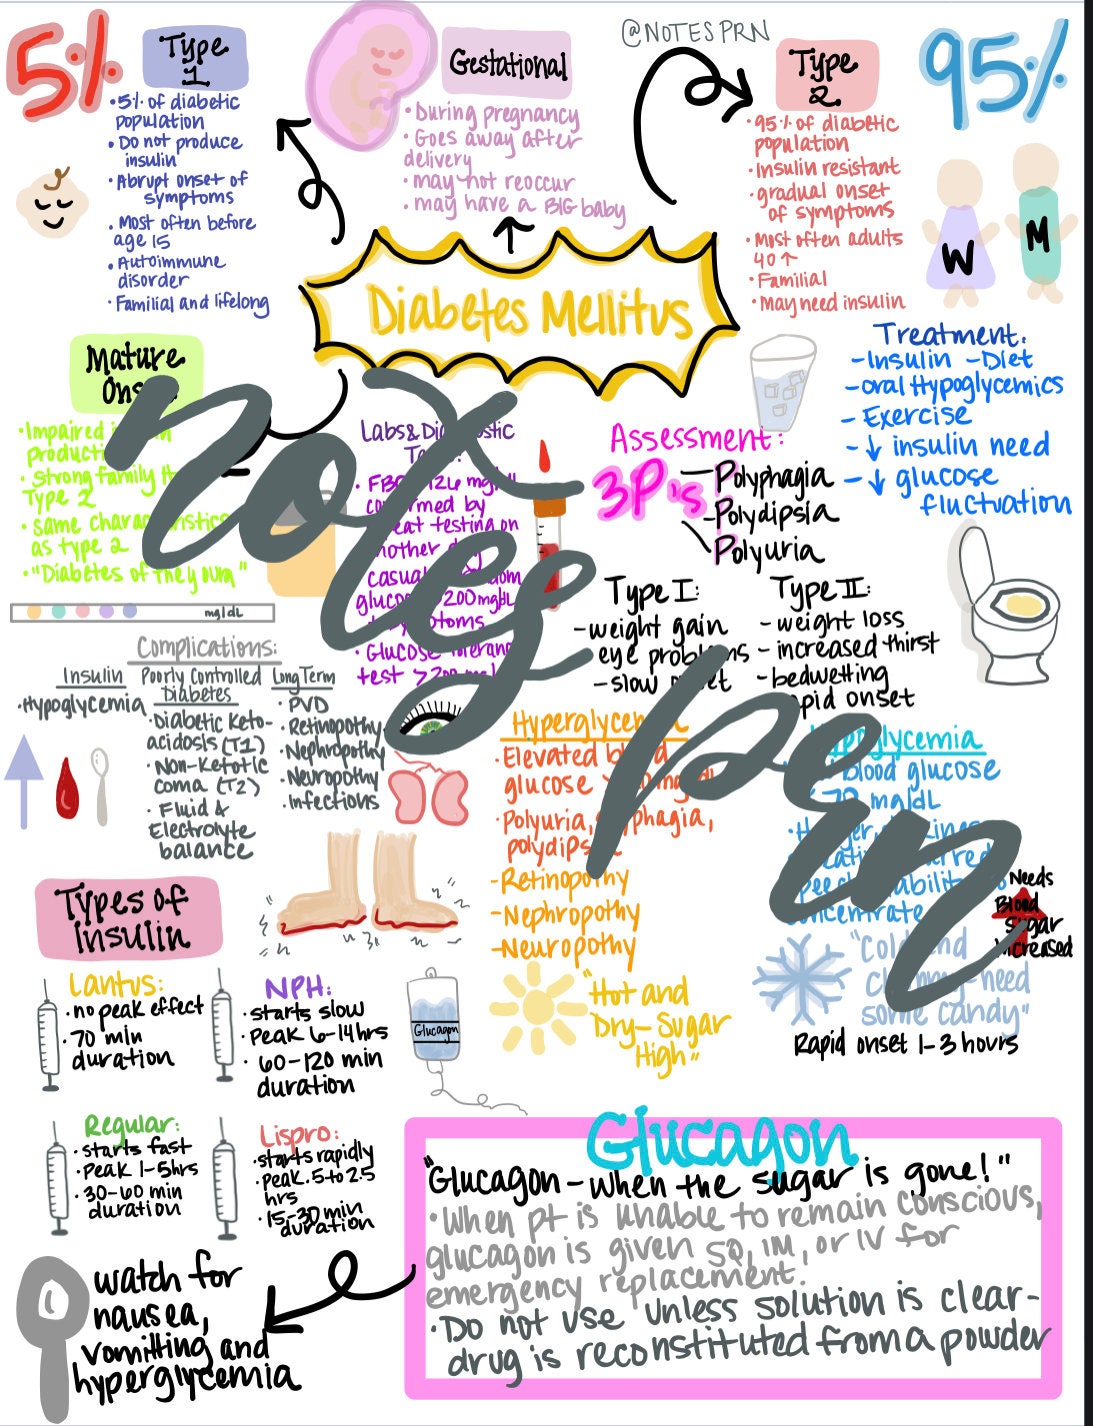 @NOTESPRN
5%
Type
1
• 5% of diabetic
population
• Do not produce
insulin
• Abrupt onset of
symptoms
• Most often before
age 15
• Autoimmune
disorder
• Familial and lifelong
Gestational
• During pregnancy
• Goes away after
delivery
• may not reoccur
• may have a BIG baby
Type
2
95%
• 95% of diabetic
population
• Insulin resistant
• gradual onset
of symptoms
• Most often adults
40 ↑
• Familial
• May need insulin
W
M
Diabetes Mellitus
Mature
• Impaired
• Strong family
Type 2
• same characteristics
as type 2
• "Diabetes of the young"
mg/dL
Labs & Diagnostic
mg/dL
by
testing on
glucose >200 mg/dL
• Glucose
test >
Assessment:
3P's
Polyphagia
Polydipsia
Polyuria
Treatment:
- Insulin - Diet
- oral Hypoglycemics
- Exercise
- ↓ insulin need
- ↓ glucose
fluctuation
Type I:
- weight gain
eye problems
- slow onset
Type II:
- weight loss
- increased thirst
- bedwetting
rapid onset
Complications:
Insulin
• Hypoglycemia
Poorly Controlled
Diabetes
• Diabetic Keto-
acidosis (T1)
• Non-Ketotic
coma (T2)
• Fluid &
Electrolyte
balance
Long Term
• PVD
• Retinopathy
• Nephropathy
• Neuropathy
• Infections
Hyperglycemia
• Elevated blood
glucose
• Polyuria, polyphagia,
polydipsia
- Retinopothy
- Nephropothy
- Neuropothy
"Hot and
Dry - Sugar
High"
Hypoglycemia
blood glucose
mg/dL
Needs
Blood
Sugar
increased
"Cold and
Clammy - need
some candy"
Rapid onset 1-3 hours
Types of
insulin
Lantus:
• no peak effect
• 70 min
duration
NPH:
• starts slow
• Peak 6-14 hrs
• 60-120 min
duration
Glucagon
Regular:
• starts fast
• Peak 1-5hrs
• 30-60 min
duration
Lispro:
• starts rapidly
• peak .5 to 2.5
hrs
• 15-30 min
duration
Glucagon
"Glucagon - when the sugar is gone!"
• When pt is unable to remain conscious,
glucagon is given SQ, IM, or IV for
emergency replacement.
• Do not use unless solution is clear-
drug is reconstituted from a powder
watch for
nausea,
vomitting and
hyperglycemia
notes
prn